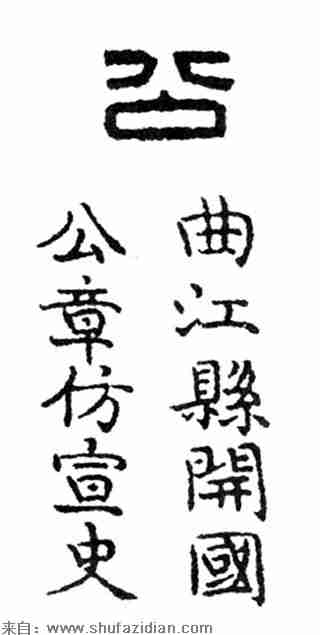 公
曲江縣開國
公章仿宣史
来自：www.shufazidian.com